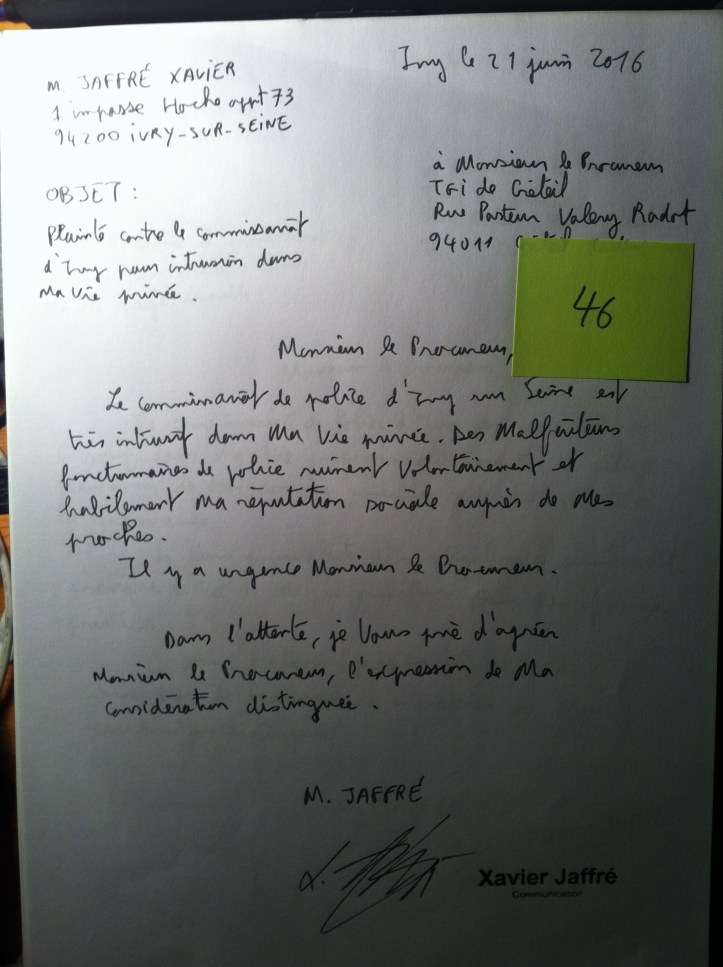 M. JAFFRÉ XAVIER
1 impasse Hoche appt 73
94200 IVRY-SUR-SEINE
Ivry le 21 juin 2016
à Monsieur le Procureur
TGI de Créteil
Rue Pasteur Valery Radot
94011
OBJET :
Plainte contre le commissariat
d'Ivry pour intrusion dans
Ma Vie privée.
46
Monsieur le Procureur,
Le commissariat de police d'Ivry sur Seine est
très intrusif dans Ma Vie privée. Des Malfaiteurs
fonctionnaires de police ruinent Volontairement et
habilement Ma réputation sociale auprès de Mes
proches.
Il y a urgence Monsieur le Procureur.
Dans l'attente, je Vous prie d'agréer
Monsieur le Procureur, l'expression de Ma
Considération distinguée.
M. JAFFRÉ
Xavier Jaffré
Communication